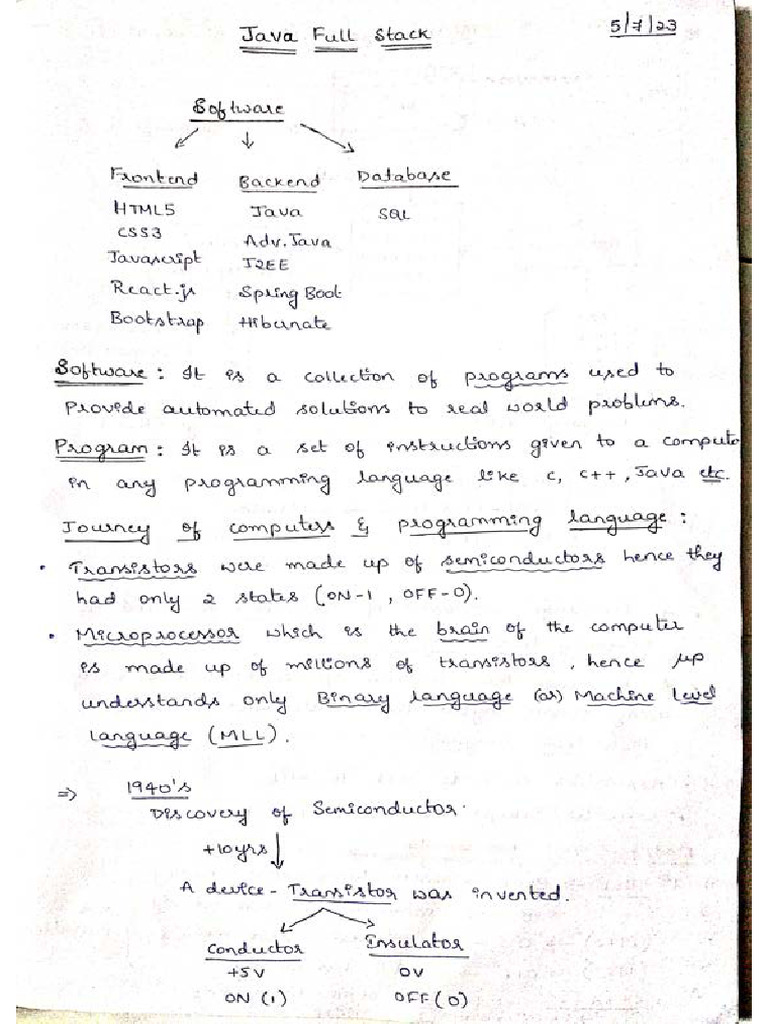 Java Full Stack
5/7/23
Software
Frontend Backend Database
HTML5 Java SQL
CSS3 Adv. Java
Javascript J2EE
React.js Spring Boot
Bootstrap Hibernate
Software : It is a collection of programs used to
provide automated solutions to real world problems.
Program : It is a set of instructions given to a compute
in any programming language like c, c++, Java etc.
Journey of computers & programming language :
• Transistors were made up of semiconductors hence they
had only 2 states (ON-1 , OFF-0).
• Microprocessor which is the brain of the computer
is made up of millions of transistors, hence μp
understands only Binary language (or) Machine level
language (MLL).
⇒ 1940's
Discovery of Semiconductor.
+10yrs
A device - Transistor was invented.
Conductor Insulator
+5V 0V
ON (1) OFF (0)